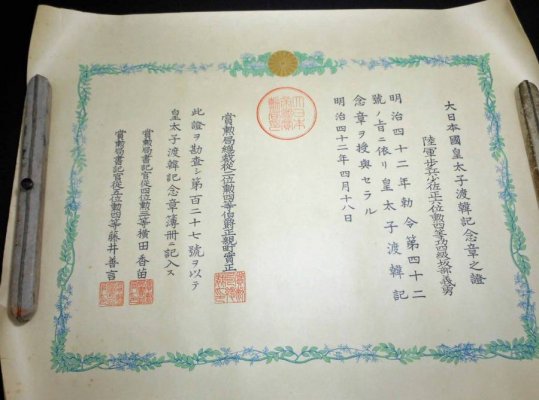 大日本國皇太子渡韓記念章之證
陸軍步兵少佐正六位勲四等功四級坂部義男
明治四十二年勅令第四十二
號ノ旨ニ依リ皇太子渡韓記
念章ヲ授與セラル
明治四十二年四月十八日
賞勲局總裁從二位勲四等伯爵正親町實正
此證ヲ勘查シ第百二十七號ヲ以テ
皇太子渡韓記念章簿冊ニ記入ス
賞勲局書記官從四位勲三等横田香苗
賞勲局書記官從五位勲四等藤井善言